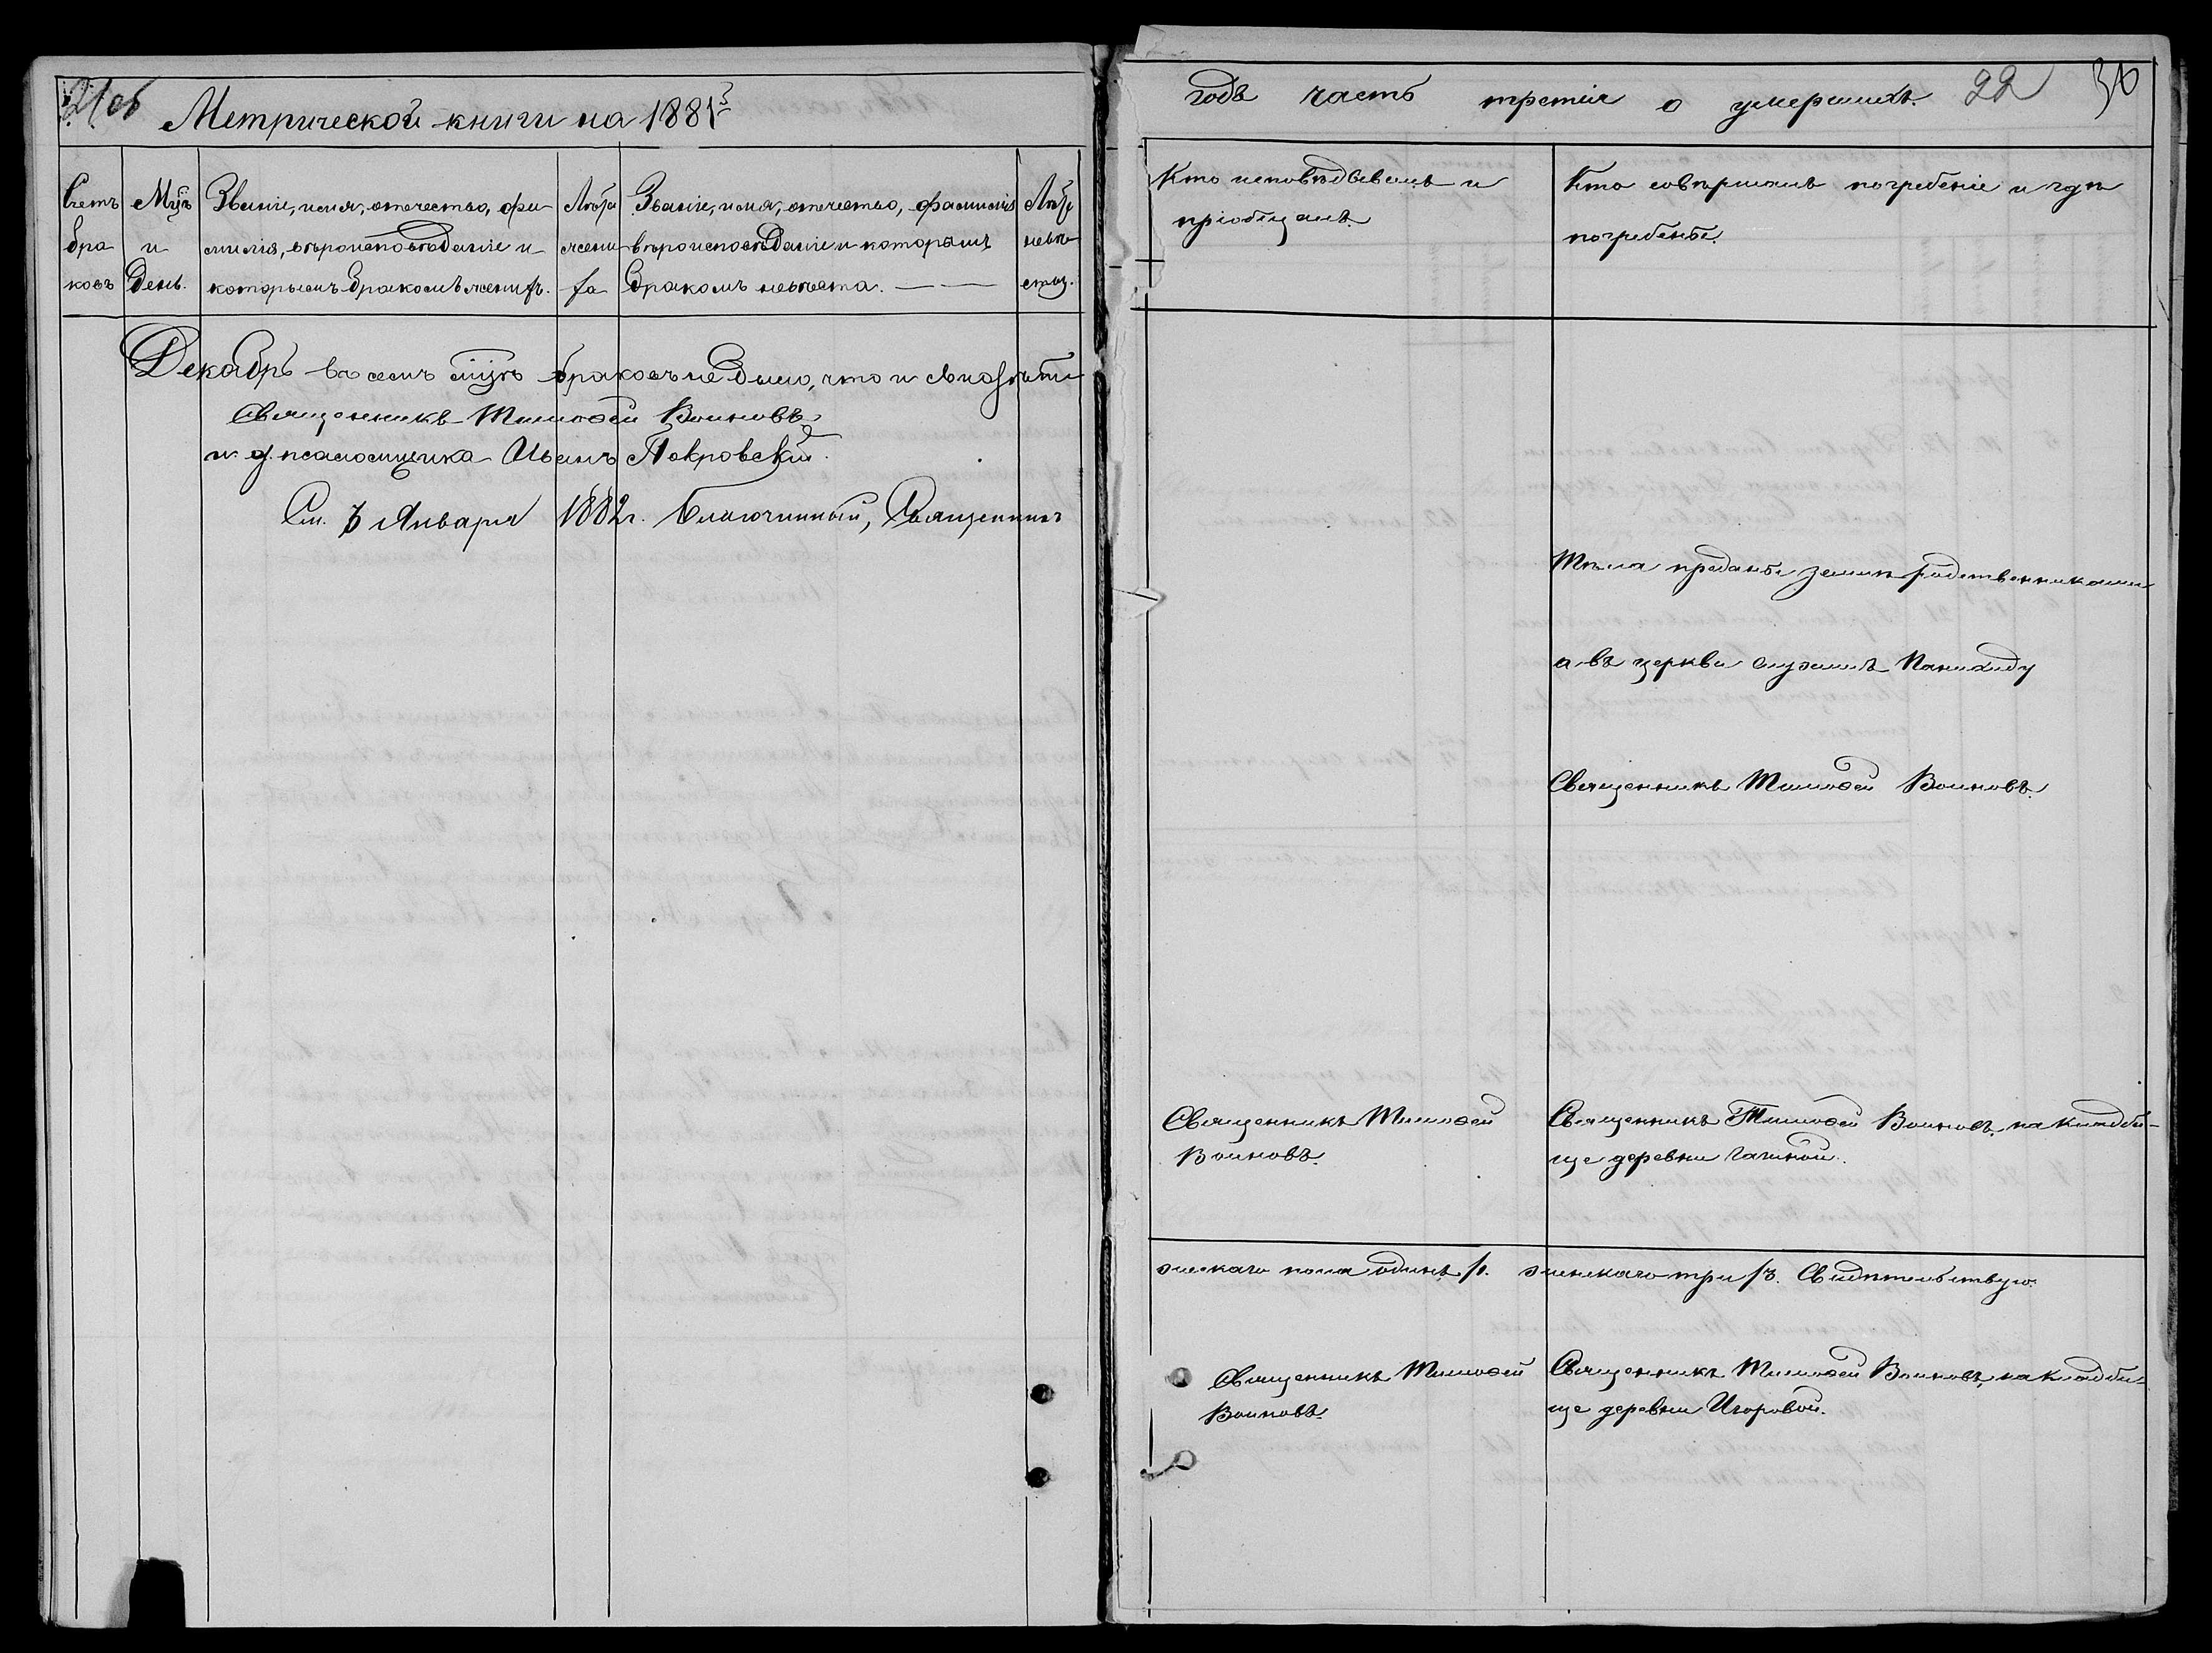 21об
Метрической книги на 1881й
Счетъ
бра
ковъ
Мцъ
и
день.
Званіе, имя, отечество, фа-
милія, вѣроисповѣданіе и
которымъ бракомъ женихъ.
Лѣта
жени
ха
Званіе, имя, отечество, фамилія
вѣроисповѣданіе и которымъ
бракомъ невѣста.
Лѣта
невѣ
сты.
Декабрь въ семъ мцѣ браковъ не было, что и
Священникъ Тимофей Воиновъ
и. д. псаломщика Иванъ Покровскій.
См. Января 1882 г. Благочинный, Священникъ
годъ часть третія о умершихъ. 22 36
Кто исповѣдывалъ и
пріобщалъ.
Кто совершалъ погребеніе и гдѣ
погребены.
Тѣла преданы землѣ родственниками
а въ церкви служилъ Панихиду
Священникъ Тимофей Воиновъ.
Священникъ Тимофей
Воиновъ.
Священникъ Тимофей Воиновъ, на кладби-
ще деревни
жескаго пола одинъ /1. женскаго три /3. Свидѣтельствую.
Священникъ Тимофей
Воиновъ.
Священникъ Тимофей Воиновъ, на кладби-
ще деревни Игоровой.